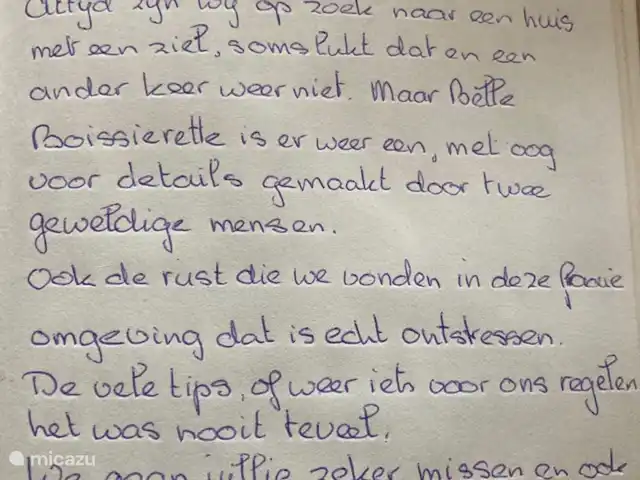 Altijd zijn wij op zoek naar een huis
met een ziel, soms lukt dat en een
ander keer weer niet. Maar Belle
Boissierette is er weer een, met oog
voor details gemaakt door twee
geweldige mensen.
Ook de rust die we vonden in deze mooie
omgeving dat is echt ontstressen.
De vele tips, of weer iets voor ons regelen
het was nooit teveel.
We gaan jullie zeker missen en ook
micazu